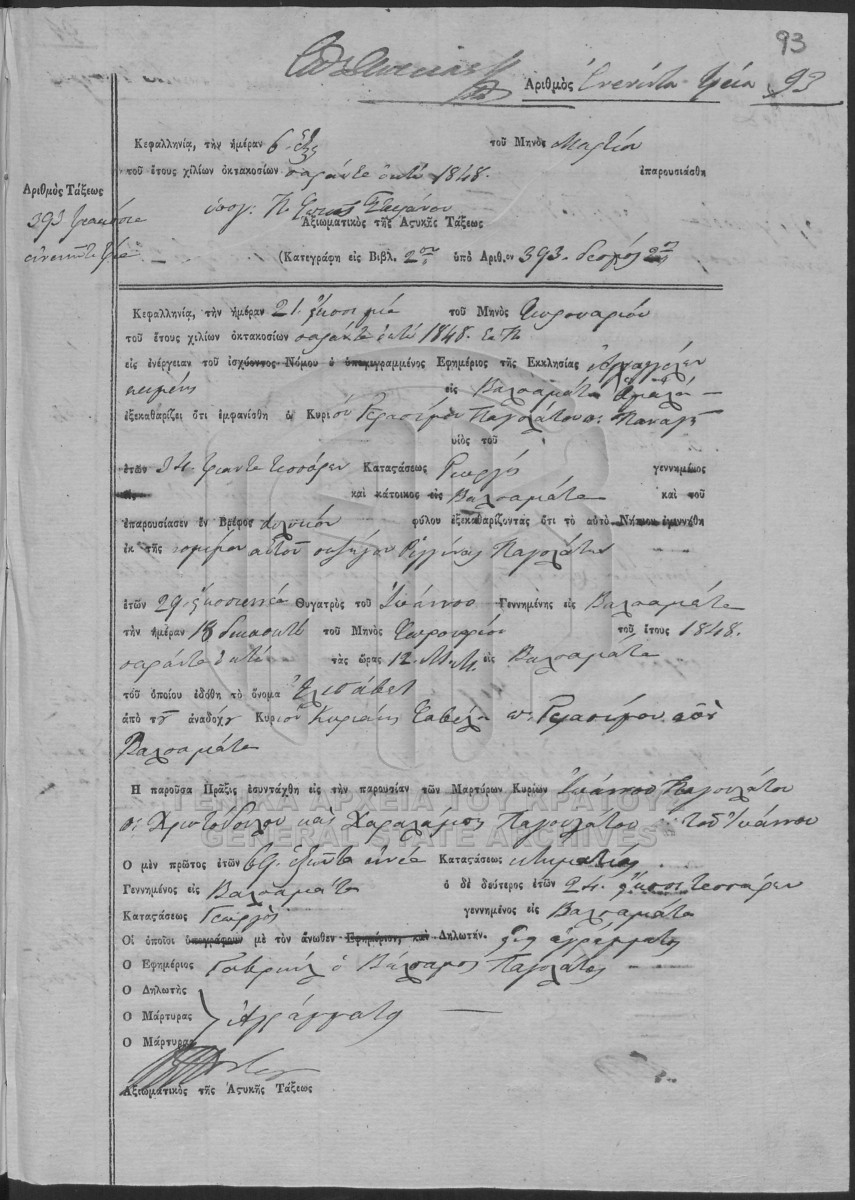 93
Ἀριθμὸς Ἐνενῆντα τρεία 93
Κεφαλληνία, τὴν ἡμέραν 6 ἕξη τοῦ Μηνὸς Μαρτίου
τοῦ ἔτους χιλίων ὀκτακοσίων σαράντα ὀκτὼ 1848. ἐπαρουσιάσθη
Ἀριθμὸς Τάξεως
393 τριακόσια
ἐνενῆντα τρία
Ἀξιωματικὸς τῆς Ἀστυκῆς Τάξεως
(Κατεγράφη εἰς Βιβλ. 2ον ὑπὸ Ἀριθ.ον 393.
Κεφαλληνία, τὴν ἡμέραν 21. εἴκοσι μία τοῦ Μηνὸς Φευρουαρίου
τοῦ ἔτους χιλίων ὀκτακοσίων σαράντα ὀκτὼ 1848.
εἰς ἐνέργειαν τοῦ ἰσχύοντος Νόμου ὁ ὑπογεγραμμένος Ἐφημέριος τῆς Ἐκκλησίας
κειμένης εἰς Βαλσαμάτα
ἐξεκαθαρίζει ὅτι ἐμφανίσθη ὁ Κύριος Γεράσιμος Παγουλάτος Παναγῆ
υἱὸς τοῦ
ἐτῶν 34. τριάντα τεσσάρων Καταστάσεως Γεωργὸς γεννημένος
εἰς καὶ κάτοικος εἰς Βαλσαμάτα καὶ τοῦ
ἐπαρουσίασεν ἓν Βρέφος θηλυκὸν φύλου ἐξεκαθαρίζοντας ὅτι τὸ αὐτὸ Νήπιον ἐγεννήθη
ἐκ τῆς νομίμου αὐτοῦ συζύγου Ῥεγγίνας Παγουλάτου
ἐτῶν 29 εἴκοσι ἐννέα Θυγατρὸς τοῦ Ἰωάννου Γεννημένης εἰς Βαλσαμάτα
τὴν ἡμέραν 18 δεκαοκτὼ τοῦ Μηνὸς Φευρουαρίου τοῦ ἔτους 1848.
σαράντα ὀκτὼ τὰς ὥρας 12. Μ.Μ. εἰς Βαλσαμάτα
τοῦ ὁποίου ἐδόθη τὸ ὄνομα Ἐλισάβετ
ἀπὸ τοῦ ἀναδόχου Κυρίου Κυριάκης Γερασίμου
Βαλσαμάτα
Ἡ παροῦσα Πρᾶξις ἐσυντάχθη εἰς τὴν παρουσίαν τῶν Μαρτύρων Κυρίων Ἰωάννου Παγουλάτου
Χριστοδούλου καὶ Χαραλάμπος Παγουλάτου τοῦ Ἰωάννου
Ὁ μὲν πρῶτος ἐτῶν 69 ἑξῆντα ἐννέα Καταστάσεως κτηματίας
Γεννημένος εἰς Βαλσαμάτα ὁ δὲ δεύτερος ἐτῶν 24. εἴκοσι τεσσάρων
Καταστάσεως Γεωργὸς γεννημένος εἰς Βαλσαμάτα
Οἱ ὁποῖοι ὑπογράφουν μὲ τὸν ἄνωθεν Ἐφημέριον, καὶ Δηλωτήν. ἀγράμματος
Ὁ Ἐφημέριος Γαβριὴλ ὁ Βάλσαμος Παγουλάτος
Ὁ Δηλωτὴς
Ὁ Μάρτυρας Ἀγράμματοι
Ὁ Μάρτυρας
Ἀξιωματικὸς τῆς Ἀστυκῆς Τάξεως
ΓΕΝΙΚΑ ΑΡΧΕΙΑ ΤΟΥ ΚΡΑΤΟΥΣ
GENERAL STATE ARCHIVES